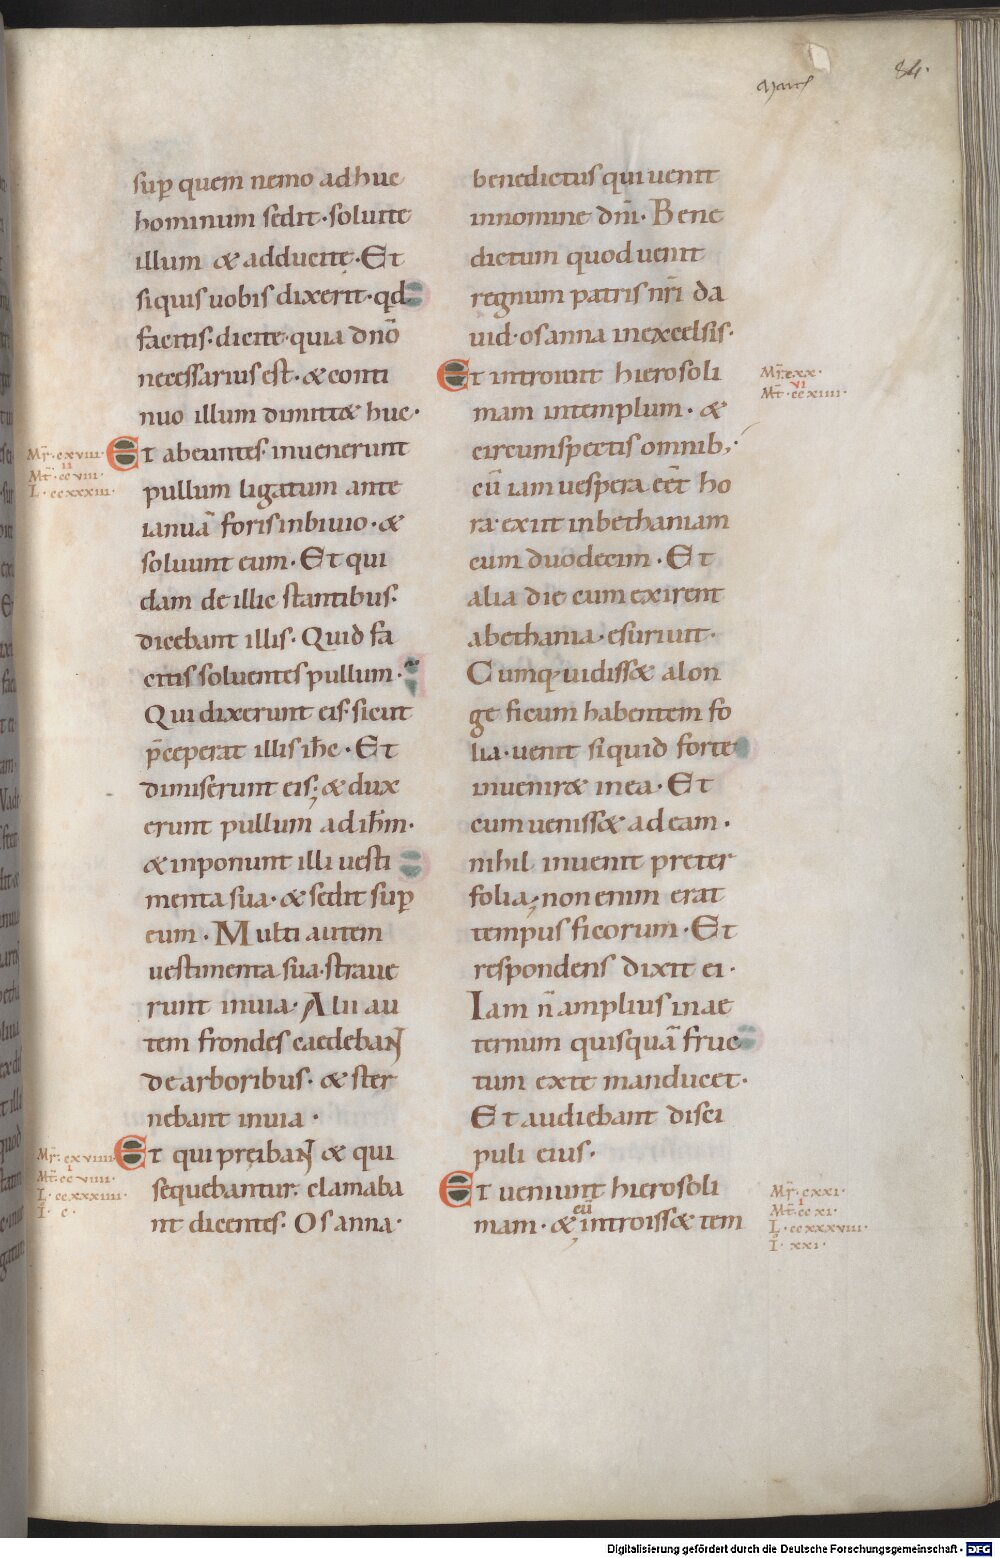 Marc
84.
sup̄ quem nemo adhuc
hominum sedit · soluite
illum & adducite · Et
siquis uobis dixerit · qd
facitis · dicite · quia dn̄o
necessarius est · & conti
nuo illum dimitt& huc ·
Mr̄ · cxviii ·
ii
Mt̄ · ccviii ·
L · ccxxxiii ·
Et abeuntes · inuenerunt
pullum ligatum ante
ianuā foris inbiuio · &
soluunt eum · Et qui
dam de illic stantibus ·
dicebant illis · Quid fa
citis soluentes pullum ·
Qui dixerunt eis · sicut
p̄ceperat illis ih̄c · Et
dimiserunt eis; & dux
erunt pullum ad ih̄m ·
& inponunt illi uesti
menta sua · & sedit sup̄
eum · Multi autem
uestimenta sua · straue
runt inuia · Alii au
tem frondes caedebant
de arboribus · & ster
nebant inuia ·
Mr̄ · cxviiii ·
i
Mt̄ · ccviiii ·
L · ccxxxiiii ·
I · c ·
Et qui pręibant & qui
sequebantur · clamaba
nt dicentes · Osanna ·
benedictus qui uenit
innomine dn̄i · Bene
dictum quod uenit
regnum patris nr̄i da
uid · osanna inexcelsis ·
Et introiuit hierosoli
mam intemplum · &
circumspectis omnib; ·
cū iam uespera eēt ho
ra · exiit inbethaniam
cum duodecim · Et
alia die cum exirent
abethania · esuriuit ·
Cumq; uidiss& alon
ge ficum habentem fo
lia · uenit siquid forte
inuenir& inea · Et
cum ueniss& ad eam ·
nihil inuenit preter
folia; non enim erat
tempus ficorum · Et
respondens dixit ei ·
Iam n̄ amplius inae
ternum quisquā fruc
tum exte manducet ·
Et audiebant disci
puli eius ·
Et ueniunt hierosoli
cū
mam · & introiss& tem
Mr̄ · cxx ·
vi
Mt̄ · ccxiiii ·
Mr̄ · cxxi ·
i
Mt̄ · ccxi ·
L · ccxxxviii ·
I · xxi ·
Digitalisierung gefördert durch die Deutsche Forschungsgemeinschaft - DFG